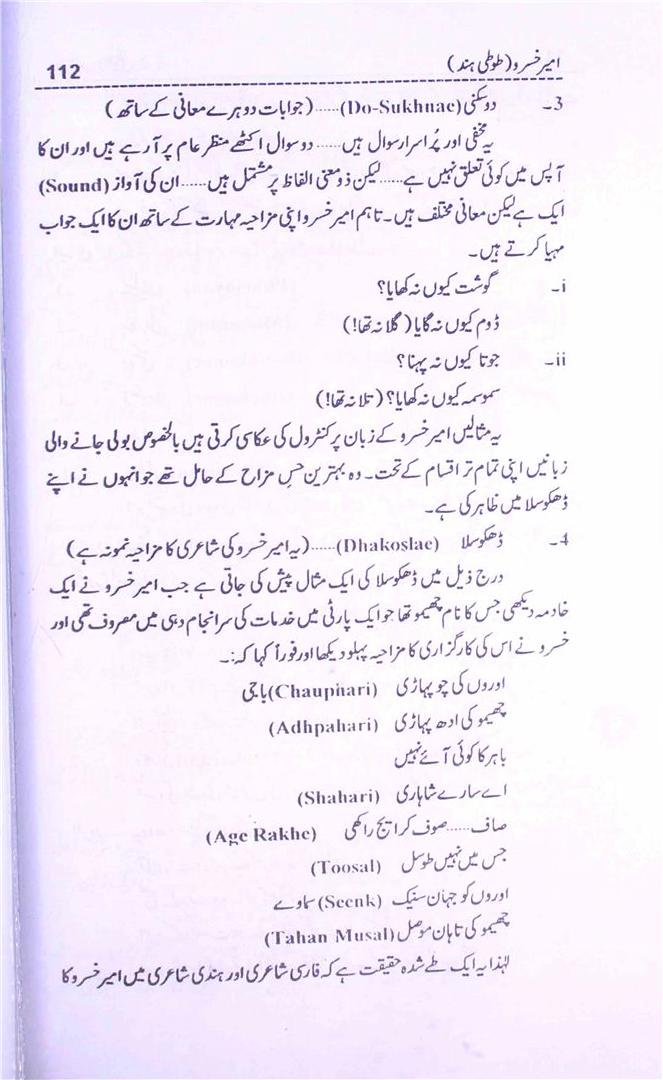 امیر خسرو (طوطی ہند) 112
3۔ دو سکنی (Do-Sukhnae)......(جوابات دوہرے معانی کے ساتھ)
یہ مخفی اور پُر اسرار سوال ہیں...... دو سوال اکٹھے منظر عام پر آ رہے ہیں اور ان کا
آپس میں کوئی تعلق نہیں ہے...... لیکن ذو معنی الفاظ پر مشتمل ہیں...... ان کی آواز (Sound)
ایک ہے لیکن معانی مختلف ہیں۔ تاہم امیر خسرو اپنی مزاحیہ مہارت کے ساتھ ان کا ایک جواب
مہیا کرتے ہیں۔
i۔ گوشت کیوں نہ کھایا؟
ڈوم کیوں نہ گایا (گلا نہ تھا!)
ii۔ جوتا کیوں نہ پہنا؟
سموسہ کیوں نہ کھایا؟ (تلا نہ تھا!)
یہ مثالیں امیر خسرو کے زبان پر کنٹرول کی عکاسی کرتی ہیں بالخصوص بولی جانے والی
زبانیں اپنی تمام تر اقسام کے تحت۔ وہ بہترین حسِ مزاح کے حامل تھے جو انہوں نے اپنے
ڈھکوسلا میں ظاہر کی ہے۔
4۔ ڈھکوسلا (Dhakoslae)......(یہ امیر خسرو کی شاعری کا مزاحیہ نمونہ ہے)
درج ذیل میں ڈھکوسلا کی ایک مثال پیش کی جاتی ہے جب امیر خسرو نے ایک
خادمہ دیکھی جس کا نام چھیمو تھا جو ایک پارٹی میں خدمات کی سرانجام دہی میں مصروف تھی اور
خسرو نے اس کی کارگزاری کا مزاحیہ پہلو دیکھا اور فوراً کہا کہ:۔
اوروں کی چوپہاڑی (Chauphari) باجی
چھیمو کی ادھ پہاڑی (Adhpahari)
باہر کا کوئی آئے نہیں
اے سارے شاہاری (Shahari)
صاف...... صوف کر ایج راکھی (Age Rakhe)
جس میں نہیں طوسل (Toosal)
اوروں کو جہان سنیک (Seenk) سماوے
چھیمو کی تاہان موصل (Tahan Musal)
لہٰذا یہ ایک طے شدہ حقیقت ہے کہ فارسی شاعری اور ہندی شاعری میں امیر خسرو کا